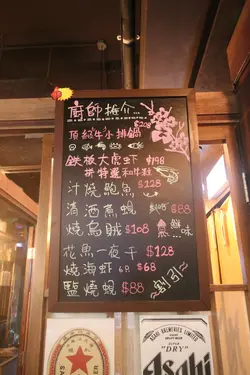 廚師推介...
頂級牛小排鍋 $208
鉄板大虎虾 $198
拼特選和牛粒
汁燒鮑魚 $128
清酒煮蜆 $108 $88
燒魷賊 $108 鮮味
花魚一夜干 $128
燒海虾 6R $68
鹽燒蜆 $88
ASAHI BREWERIES LIMITED
SUPER
"DRY"
Asahi